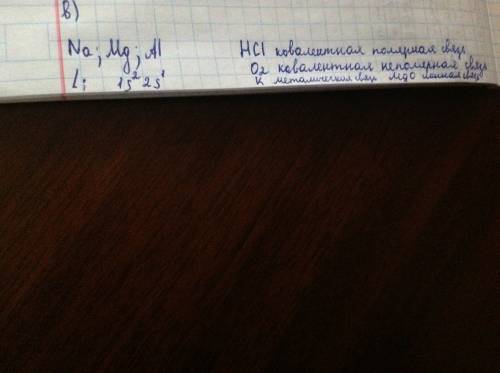 в)
Na; Mg; Al HCl ковалентная полярная связь
Li 1s² 2s¹ O2 ковалентная неполярная связь
K металическая связь MgO ионная связь